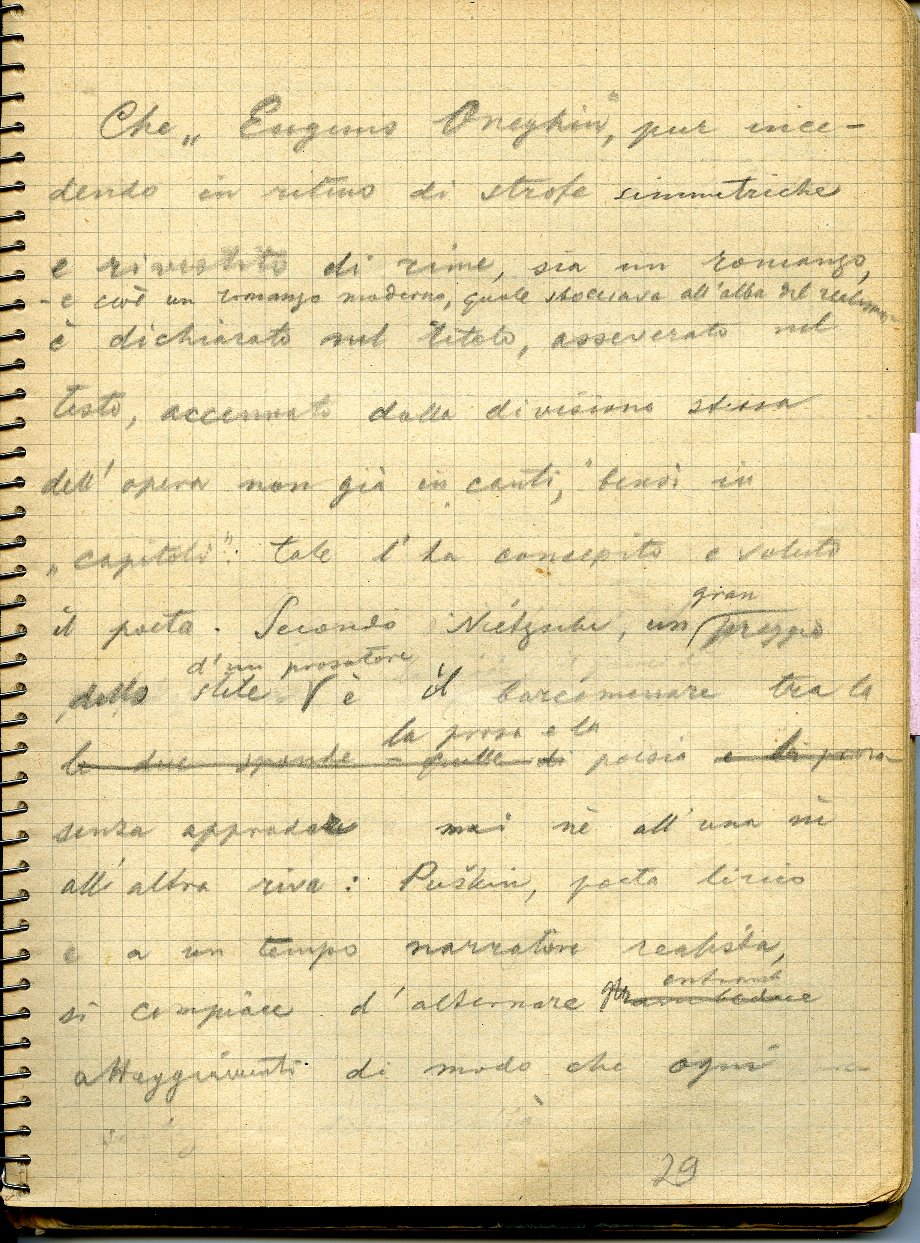 Che „Eugenio Oneghin", pur ince-
dendo in ritmo di strofe simmetriche
e rivestito di rime, sia un romanzo,
- e cioè un romanzo moderno, quale sbocciava all'alba del realismo -
è dichiarato nel titolo, asseverato nel
testo, accennato dalla divisione stessa
dell'opera non già in „canti," bensì in
„capitoli": tale l'ha concepito e voluto
il poeta. Secondo Nietzsche, un gran pregio
dello stile d'un prosatore è il barcamenare tra la
le due sponde - quelle di la prosa e la poesia e di prosa -
senza approdare mai nè all'una nè
all'altra riva: Puškin, poeta lirico
e a un tempo narratore realista,
si compiace d'alternare entrambi
atteggiamenti di modo che ogni
29